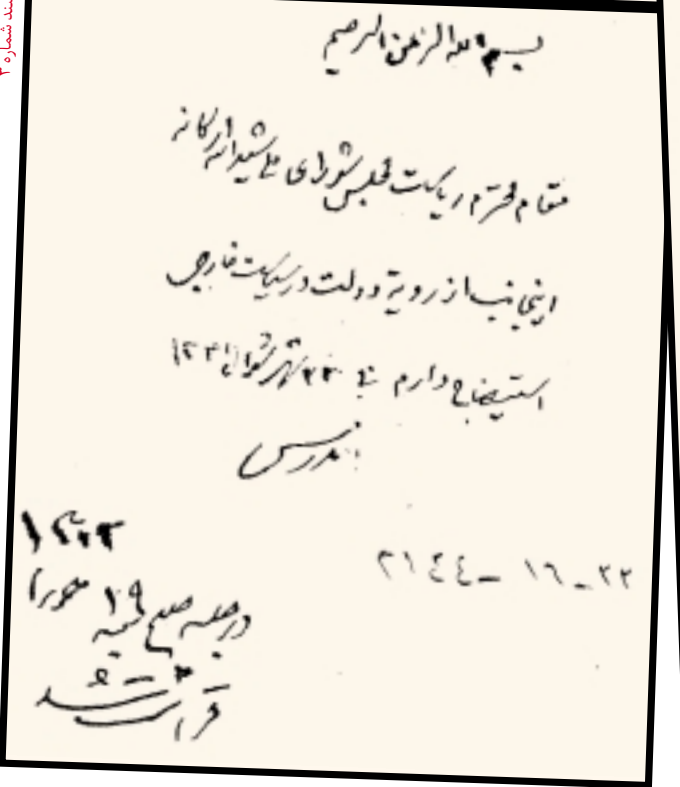 سند شماره ۳
بسم الله الرحمن الرحیم
مقام محترم ریاست مجلس شورای ملی شیدالله ارکانه
اینجانب از رویهٔ دولت در سیاست خارجی
استیضاح دارم ۲۲ شهر شوال ۱۳۴۱
مدرس
۲۱۴۴ - ۱۶ - ۲۲
در جلسه صبح ۱۹ جوزا
قرائت شد